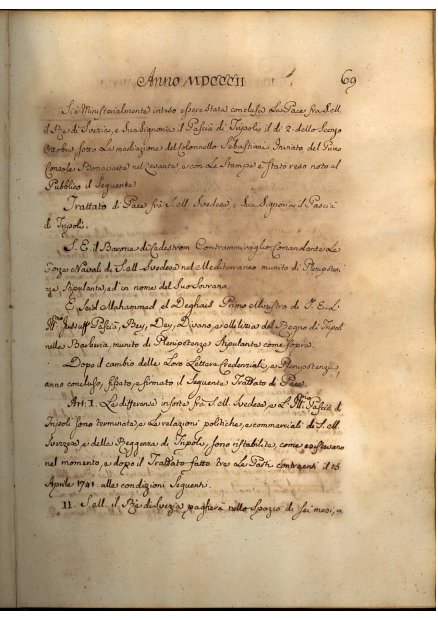 Anno MDCCCII 69
Si è Ministerialmente inteso essere stata conclusa La Pace fra S. M.
il Rè di Svezia, e Sua Signoria il Pascià di Tripoli il di 2. dello Scorso
Ottobre sotto La mediazione del Colonnello Sebastiani Inviato del Primo
Console Bonaparte nel Levante, e con Le Stampe è stato reso noto al
Pubblico il Seguente
Trattato di Pace frà S. M. Svedese, e Sua Signoria il Pascià
di Tripoli.
S. E. il Barone di Cederstrom Contrammiraglio Comandante Le
Forze Navali di S. M. Svedese nel Mediterraneo munito di Plenipoten
za Stipulante, ed in nome del Suo Sovrano.
E Seid Mahammed el Deghais Primo Ministro di S. E. Li
Jussuff Pascià, Bey, Dey, Divano, e Milizia del Regno di Tripoli
nella Barberia, munito di Plenipotenza Stipulante come sopra.
Dopo il cambio delle Loro Lettere Credenziali, e Plenipotenza,
anno concluso, fissato, e firmato il Seguente Trattato di Pace.
Art: I. Le differenze insorte frà S. M. Svedese, e Pascià di
Tripoli sono terminate, e Le relazioni politiche, e commerciali di S. M.
Svezzia, e della Reggenza di Tripoli, sono ristabilite, come esistevano
nel momento, e dopo il Trattato fatto tra Le Parti contraenti il 15
Aprile 1741. alle condizioni Seguenti.
II. S. M. il Rè di Svezia pagherà nello Spazio di Sei mesi, a